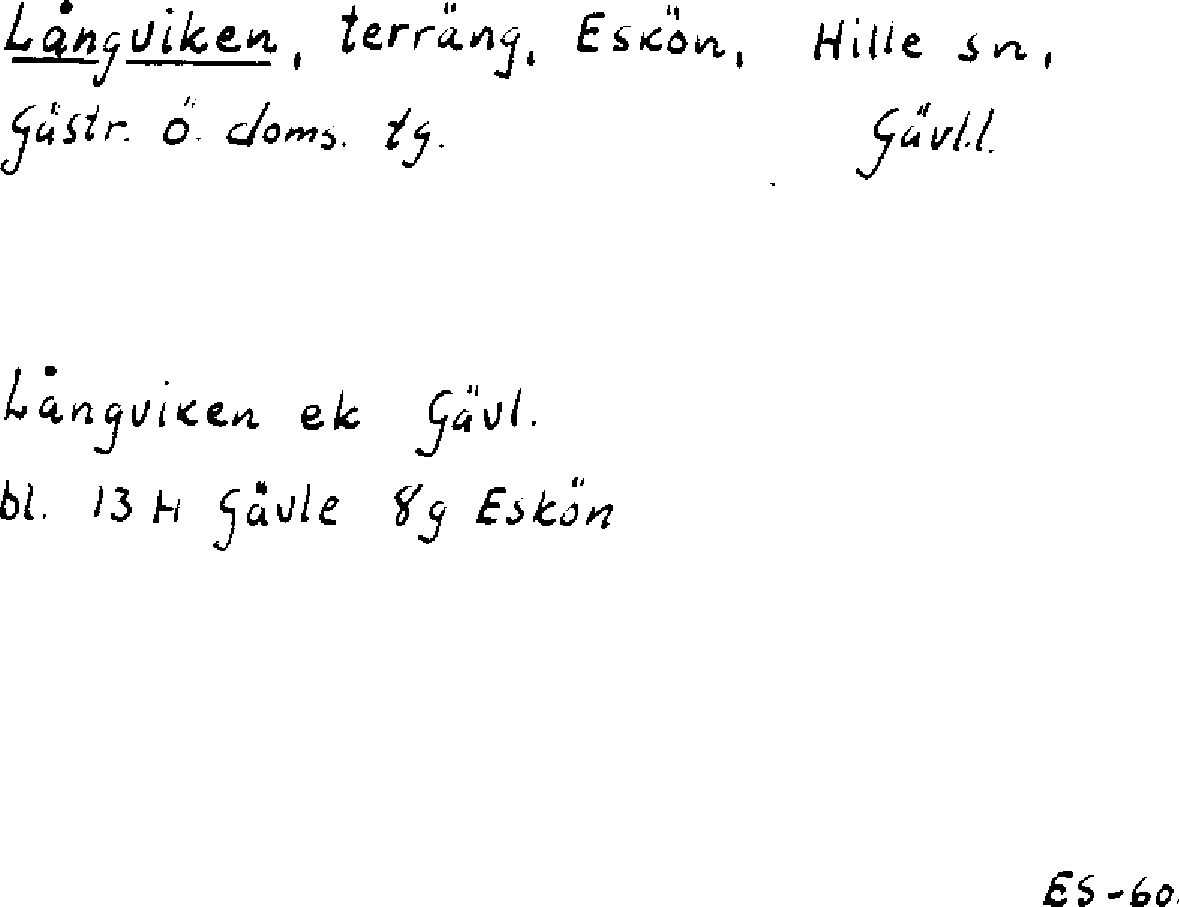 Långviken, terräng, Eskön, Hille sn,
Gästr. Ö. doms. tg. Gävl.l.
Långviken ek Gävl.
bl. 13 H Gävle 8g Eskön
ES-60.